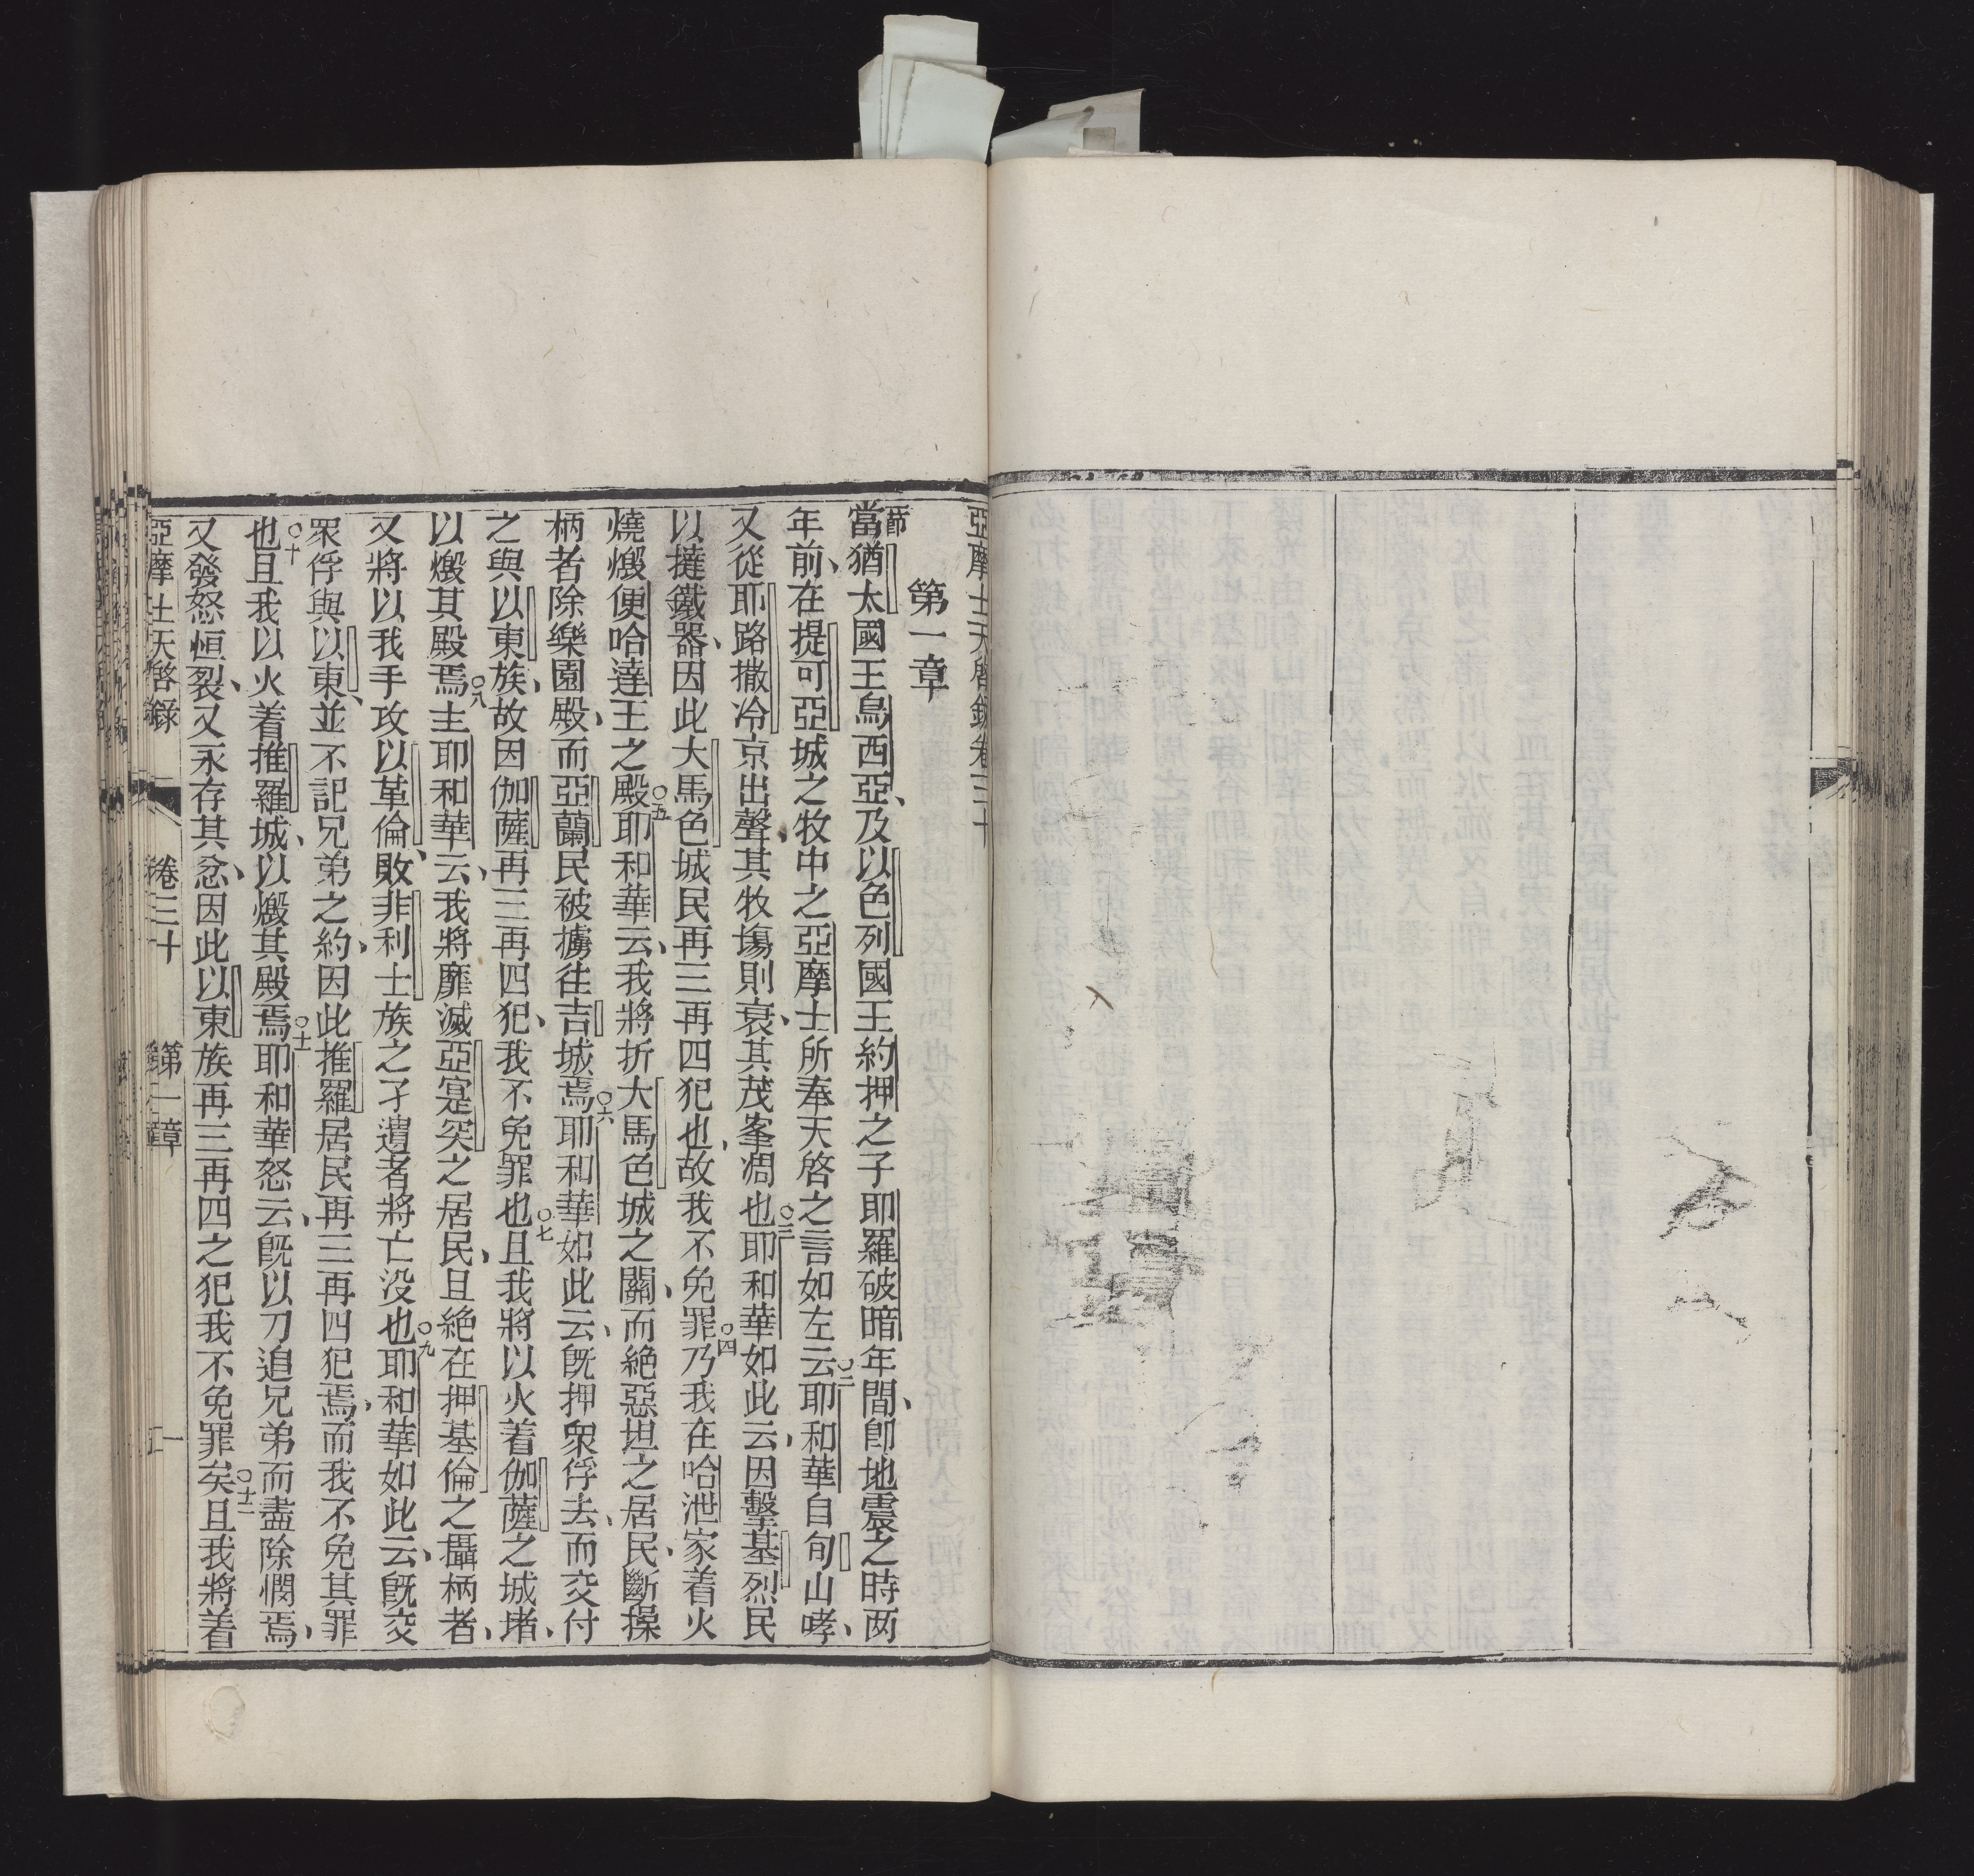 亞摩士天啓錄卷三十
第一章
節當猶太國王烏西亞、及以色列國王約押之子耶羅破暗年間、卽地震之時两
年前、在提可亞城之牧中之亞摩士所奉天啓之言如左云○二耶和華自旬山哮、
又從耶路撒冷京出聲、其牧塲則衰、其茂峯凋也○三耶和華如此云、因擊基烈民
以撻鐵器、因此大馬色城民再三再四犯也、故我不免罪○四乃我在哈泄家着火
燒燬便哈達王之殿○五耶和華云、我將折大馬色城之關、而絕惡坦之居民、斷操
柄者除樂園殿、而亞蘭民被擄徃吉城焉○六耶和華如此云、旣押衆俘去、而交付
之與以東族、故因伽薩再三再四犯、我不免罪也○七且我將以火着伽薩之城堵、
以燬其殿焉○八主耶和華云、我將靡滅亞寔突之居民、且絕在押基倫之攝柄者、
又將以我手攻以革倫、敗非利士族之孑遺者將亡没也○九耶和華如此云、旣交
衆俘與以東、並不記兄弟之約、因此推羅居民再三再四犯焉、而我不免其罪
也○十且我以火着推羅城、以燬其殿焉○十一耶和華怒云、旣以刀追兄弟而盡除憫焉、
又發怒恒裂、又永存其忿、因此以東族再三再四之犯我不免罪矣○十二且我將着
亞摩士天啓錄 卷三十 第一章 一